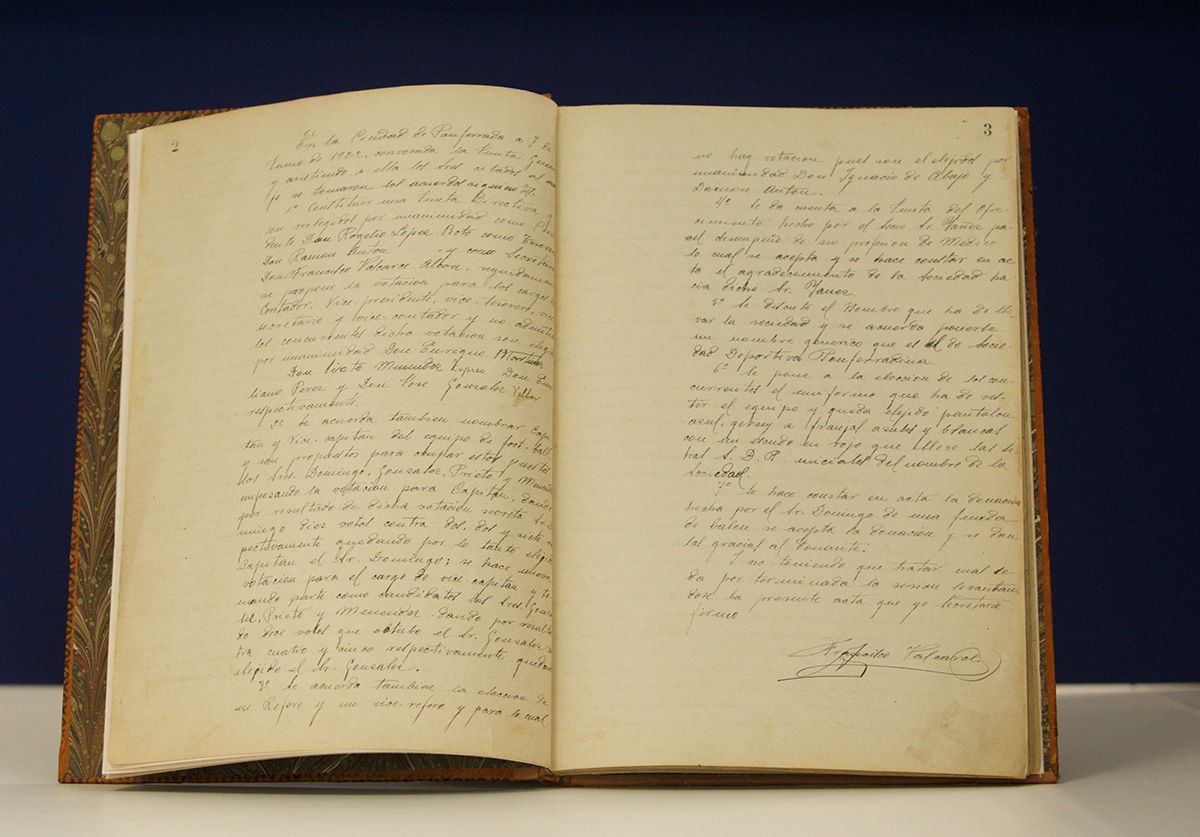 2
En la Ciudad de Ponferrada a 7 de
Junio de 1922, convocada la Junta Gene
y asistiendo a ella los Sres citados al
je se tomaron los acuerdos siguientes.
1º Constituir una Junta Directiva
son reelegidos por unanimidad como
dente Don Rogelio López Boto como Tesore
Don Ramon Anton y como Secretario
Don Francisco Valcarce Albon, seguidamen
se propone la votacion para los cargos
Contador, Vice-presidente, vice-tesorero, vice
secretario y vice-contador y no admitien
los concurrentes dicha votacion son elegi
por unanimidad Don Enrique Martinez
Don Sixto Menendez Don
liano Perez y Don José Gonzalez
respectivamente.
2º Se acuerda tambien nombrar Capi
tan y Vice-capitan del equipo de foot-ball
y son propuestos para ocupar estos puestos
los Sres. Domingo, Gonzalez, Prieto y Menend
empezando la votacion para Capitan, dando
por resultado de dicha votacion secreta Sr.
mingo diez votos contra dos, dos y siete
pectivamente quedando por lo tanto elegido
Capitan el Sr. Domingo; se hace nueva
votacion para el cargo de vice-capitan y to
mando parte como candidatos los Sres. Gonza
lez, Prieto y Menendez dando por resulta
do doce votos que obtubo el Sr. Gonzalez
tra cuatro y cinco respectivamente quedan
elegido el Sr. Gonzalez.
3º Se acuerda tambien la eleccion de
un Refere y un vice-refere y para lo cual
3
no hay votacion pues son elejidos por
unanimidad Don Ignacio de Abajo y
Damon Anton.
4º Se da cuenta a la Junta del Ofre-
cimiento hecho por el socio Sr. Yáñez pa-
ra el desempeño de su profesion de Medico
lo cual se acepta y se hace constar en ac-
ta el agradecimiento de la Sociedad ha-
cia dicho Sr. Yañez.
5º Se discute el Nombre que ha de lle-
var la sociedad y se acuerda ponerle
un nombre generico que es el de Socie-
dad Deportiva Ponferradina.
6º Se pone a la eleccion de los con-
currentes el uniforme que ha de ves-
tir el equipo y queda elejido pantalon
azul, gersey a franjas azules y blancas
con un escudo en rojo que lleve las le-
tras S. D. P. iniciales del nombre de la
Sociedad.
7º Se hace constar en acta la donacion
hecha por el Sr. Domingo de una funda
de balon se acepta la donacion y se dan
las gracias al donante.
Y no teniendo que tratar mas se
da por terminada la sesion levantan-
dose la presente acta que yo Secretario
firmo
Francisco Valcarce